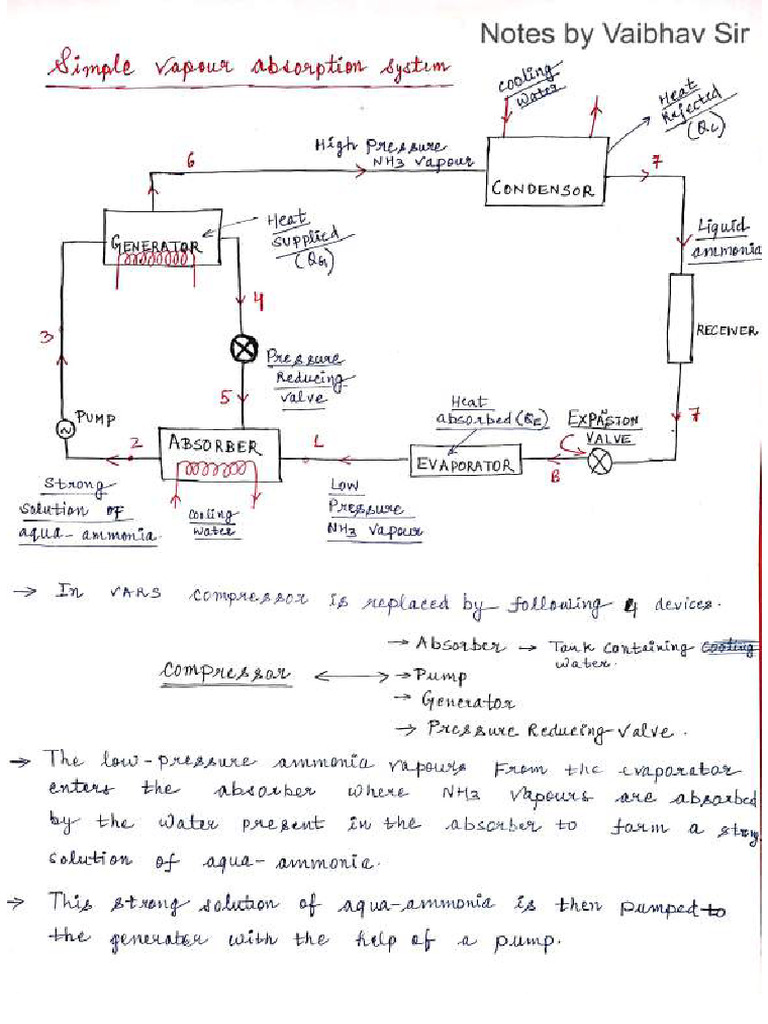 Notes by Vaibhav Sir
Simple vapour absorption system
cooling
water
Heat
Rejected
(QC)
High Pressure
NH3 vapour
6
CONDENSOR
7
GENERATOR
Heat
supplied
(QG)
Liquid
ammonia
4
3
RECEIVER
Pressure
Reducing
valve
5
PUMP
Heat
absorbed (QE)
EXPANSION
VALVE
7
2
ABSORBER
1
EVAPORATOR
8
Strong
solution of
aqua-ammonia
cooling
water
Low
Pressure
NH3 vapour
→ In VARS compressor is replaced by following 4 devices.
→ Absorber → Tank containing cooling
water.
compressor ⟷ → Pump
→ Generator
→ Pressure Reducing valve.
→ The low-pressure ammonia vapours from the evaporator
enters the absorber where NH3 vapours are absorbed
by the water present in the absorber to form a strong
solution of aqua-ammonia.
→ This strong solution of aqua-ammonia is then pumped to
the generator with the help of a pump.